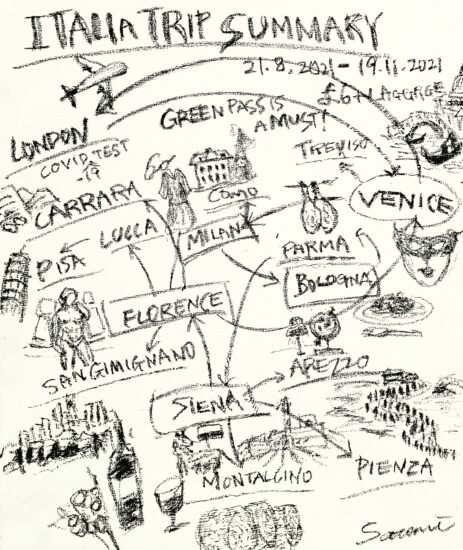 ITALIA TRIP SUMMARY
21.8.2021 - 19.11.2021
£6 + LAGGAGE
LONDON
COVID TEST
-19
GREEN PASS IS
A MUST!
TREVISO
VENICE
CARRARA
COMO
MILAN
LUCCA
PISA
PARMA
BOLOGNA
FLORENCE
SAN GIMIGNANO
AREZZO
SIENA
MONTALCINO
PIENZA